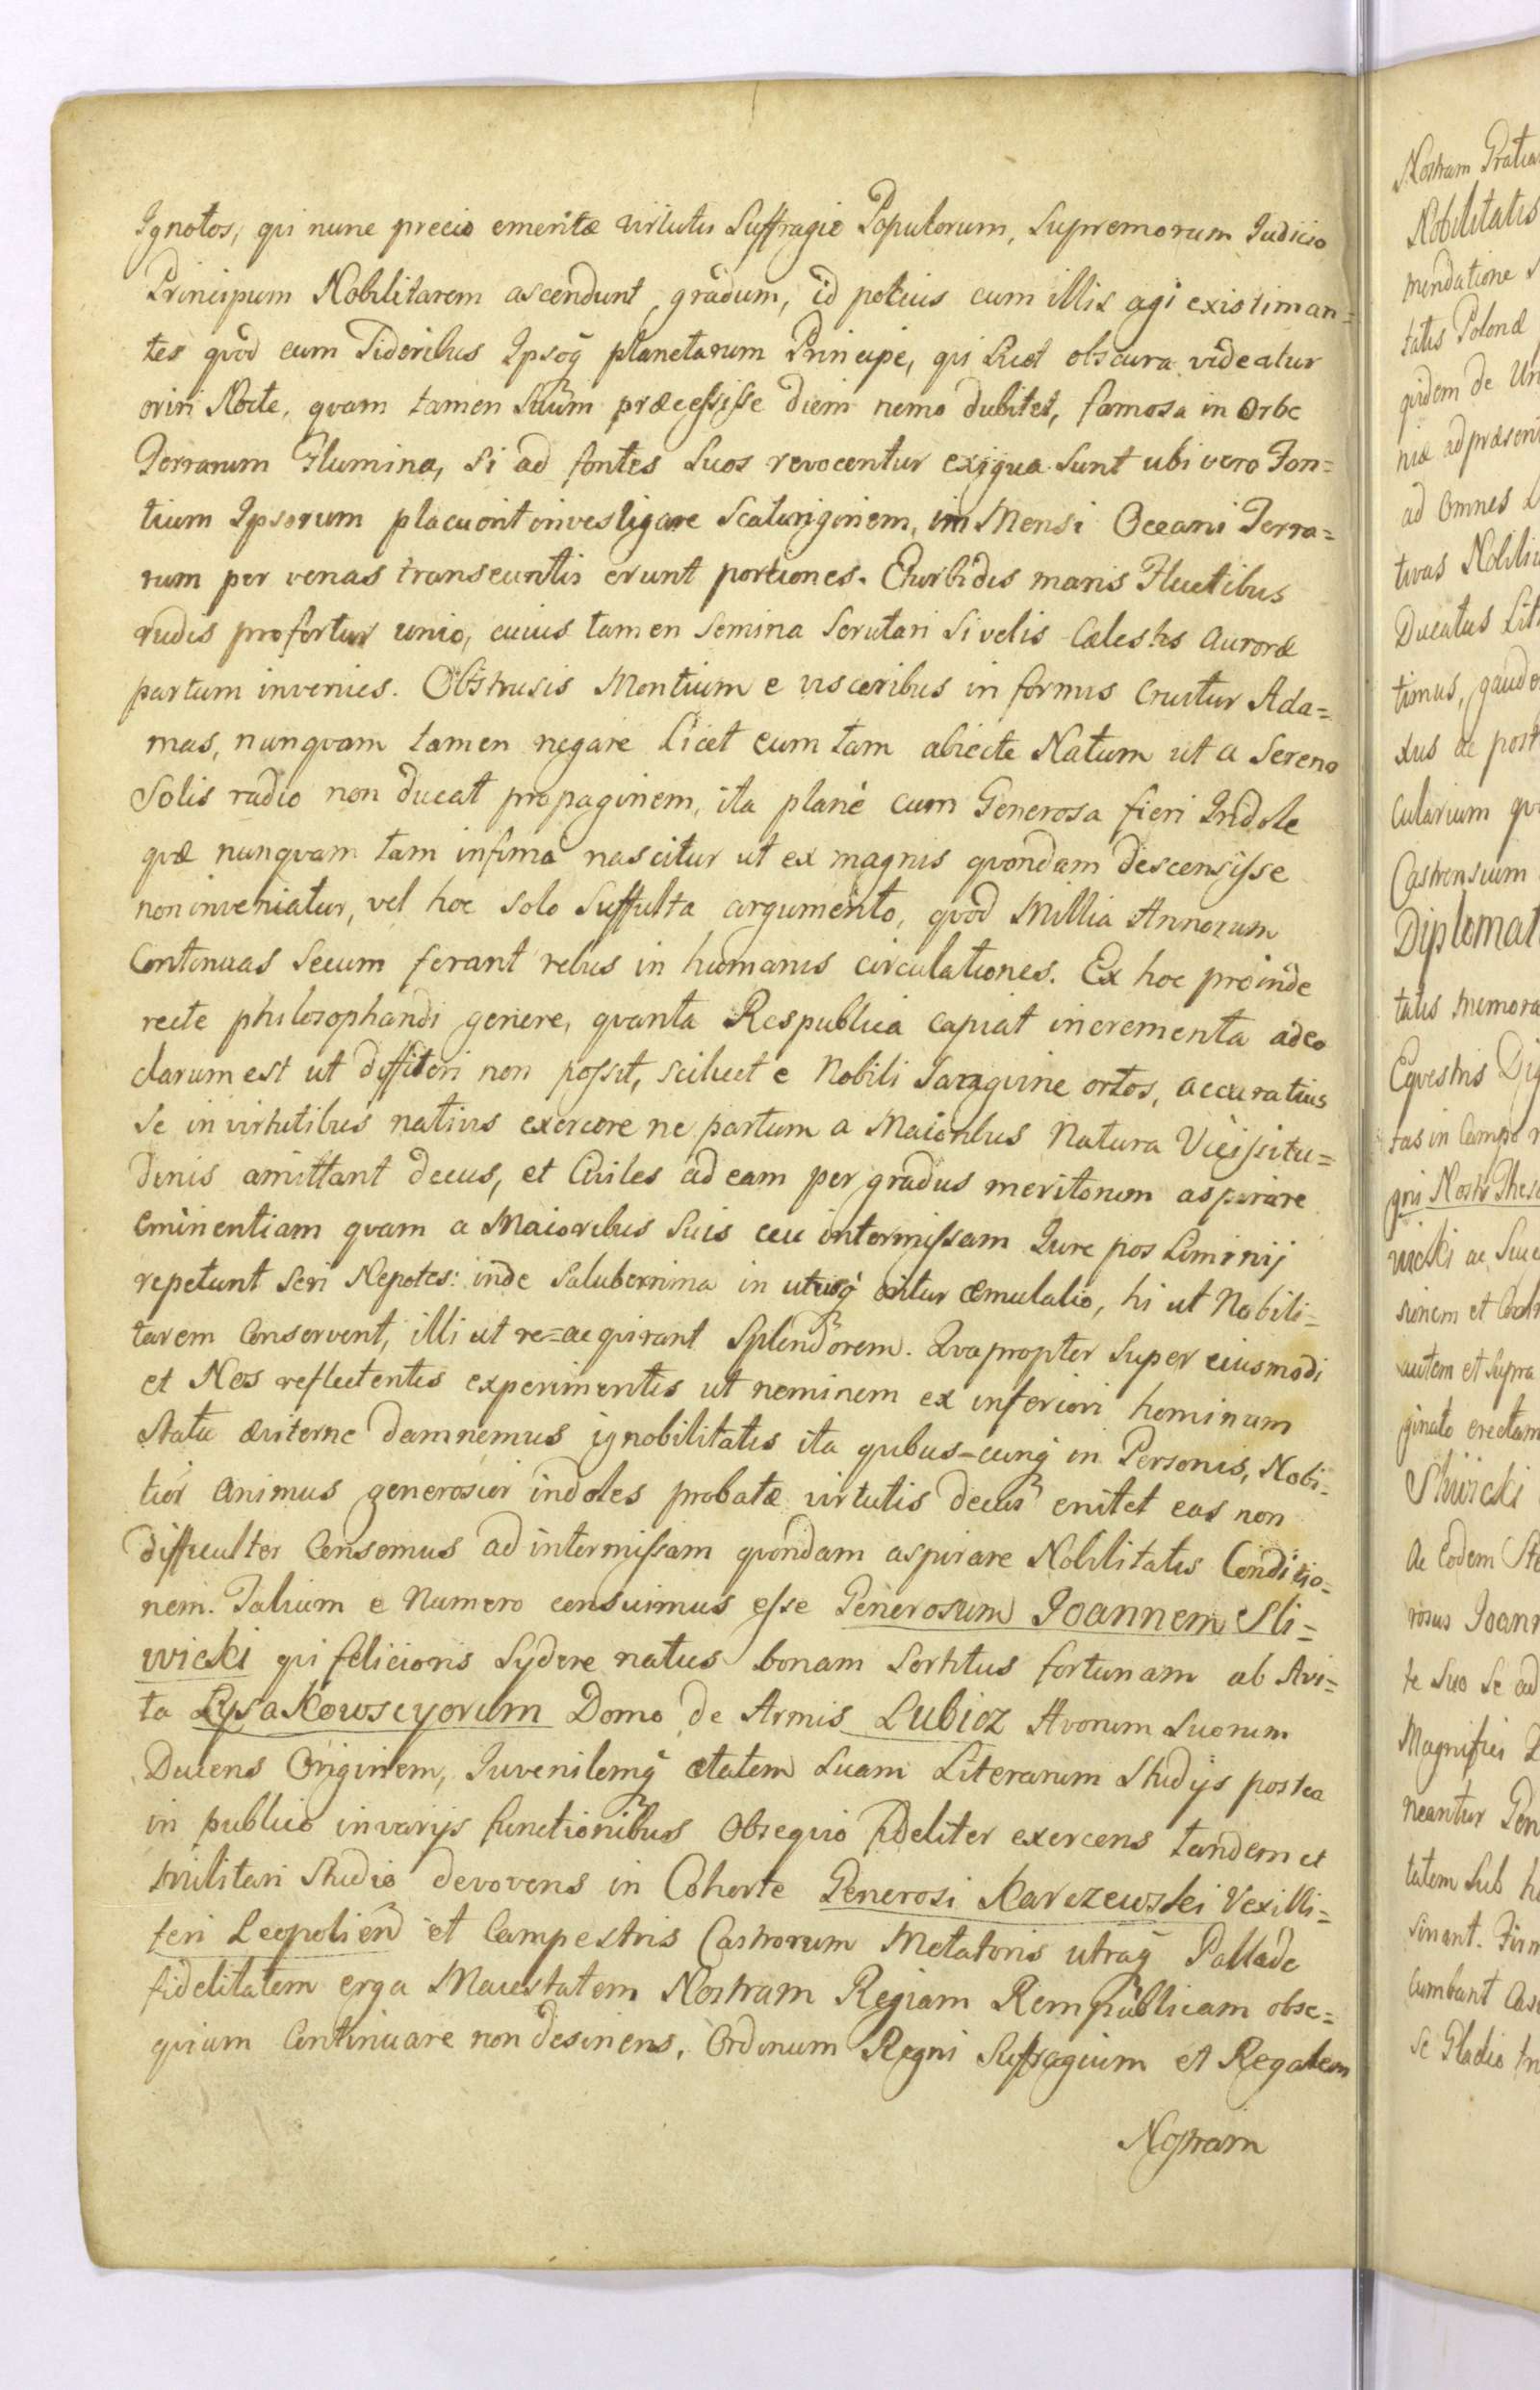 Ignotos, qui nunc precio emeritæ virtutis Suffragio Populorum, Supremorum Iudicio
Principum Nobilitarem ascendunt gradum, id potius cum illis agi existiman=
tes quod cum Sideribus Ipsoq planetarum Principe, qui Licet obscura videatur
oriri Nocte, quam tamen Suum præcessisse diem nemo dubitet, famosa in Orbe
Terrarum Flumina, Si ad fontes Suos revocentur exigua Sunt ubi vero Fon=
tium Ipsorum placuerit investigare Scaturiginem, im Mensi Oceani Terra=
rum per venas transeuntis erunt portiones. E turbidis maris Fluctibus
rudis profertur unio, cuius tamen Semina Scrutari Si velis Cælestis Auroræ
partum invenies. Obstrusis Montium e visceribus in formis Eruitur Ada=
mas, nunquam tamen negare Licet eum tam abiecte Natum ut a Sereno
Solis radio non ducat propaginem, ita planè cum Generosa fieri Indole
quæ nunquam tam infima nascitur ut ex magnis quondam descensisse
non inveniatur, vel hoc Solo Suffulta argumento, quod Millia Annorum
Continuas Secum ferant rebus in humanis circulationes. Ex hoc proinde
recte philosophandi genere, quanta Respublica capiat incrementa adeo
clarum est ut diffiteri non possit, scilicet e Nobili Sanguine ortos, accuratius
Se in virtutibus nativis exercere ne partum a Maioribus Natura Vicissitu=
dinis amittant decus, et Civiles ad eam per gradus meritorum aspirare
Eminentiam quam a Maioribus Suis ceu intermissam Iure pos Liminij
repetunt Seri Nepotes: inde Saluberrima in utrisq oritur æmulatio, hi ut Nobili=
tarem Conservent, illi ut re=acquirant Splendorem. Quapropter Super eiusmodi
et Nos reflectentes experimentis ut neminem ex inferiori hominum
Statu æviterne damnemus ignobilitatis ita quibus=cunq in Personis, Nobi=
lior Animus generosior indoles probatæ virtutis decus enitet eas non
difficulter Censemus ad intermissam quondam aspirare Nobilitatis Conditio=
nem. Talium e Numero censuimus esse Generosum Ioannem Sli=
wicki qui felicioris Sydere natus bonam Sortitus fortunam ab Avi=
ta Lysakowscyorum Domo de Armis Lubicz Avorum Suorum
Ducens Originem, Iuvenilemq ætatem Suam Literarum Studijs postea
in publico in varijs functionibus Obsequio fideliter exercens tandem et
militari Studio devovens in Cohorte Generosi Karczewski Vexilli=
feri Leopolien et Campestris Castrorum Metatoris utraq Pallade
fidelitatem erga Maiestatem Nostram Regiam Rempublicam obse=
quium Continuare non desinens, Ordinum Regni Sufragium et Regalem
Nostram
Nostram Gratia
Nobilitatis
mendatione
tatis Polonæ
quidem de Un
niæ ad præsen
ad Omnes
tivas Nobili
Ducatus Lit
timus, gaude
xus ac post
cularium qu
Castrensium
Diplomat
tatis memora
Equestris Dig
tas in Campo
gni Nostr Thes
wicki ac Suc
sionem et
autem et Supra
ginato erectam
Sliwicki
Ac Eodem Ste
rosus Ioann
te Suo Se ad
Magnifici
neantur Gen
tatem Sub h
sinant. Firm
cumbant Cas
Se Gladio